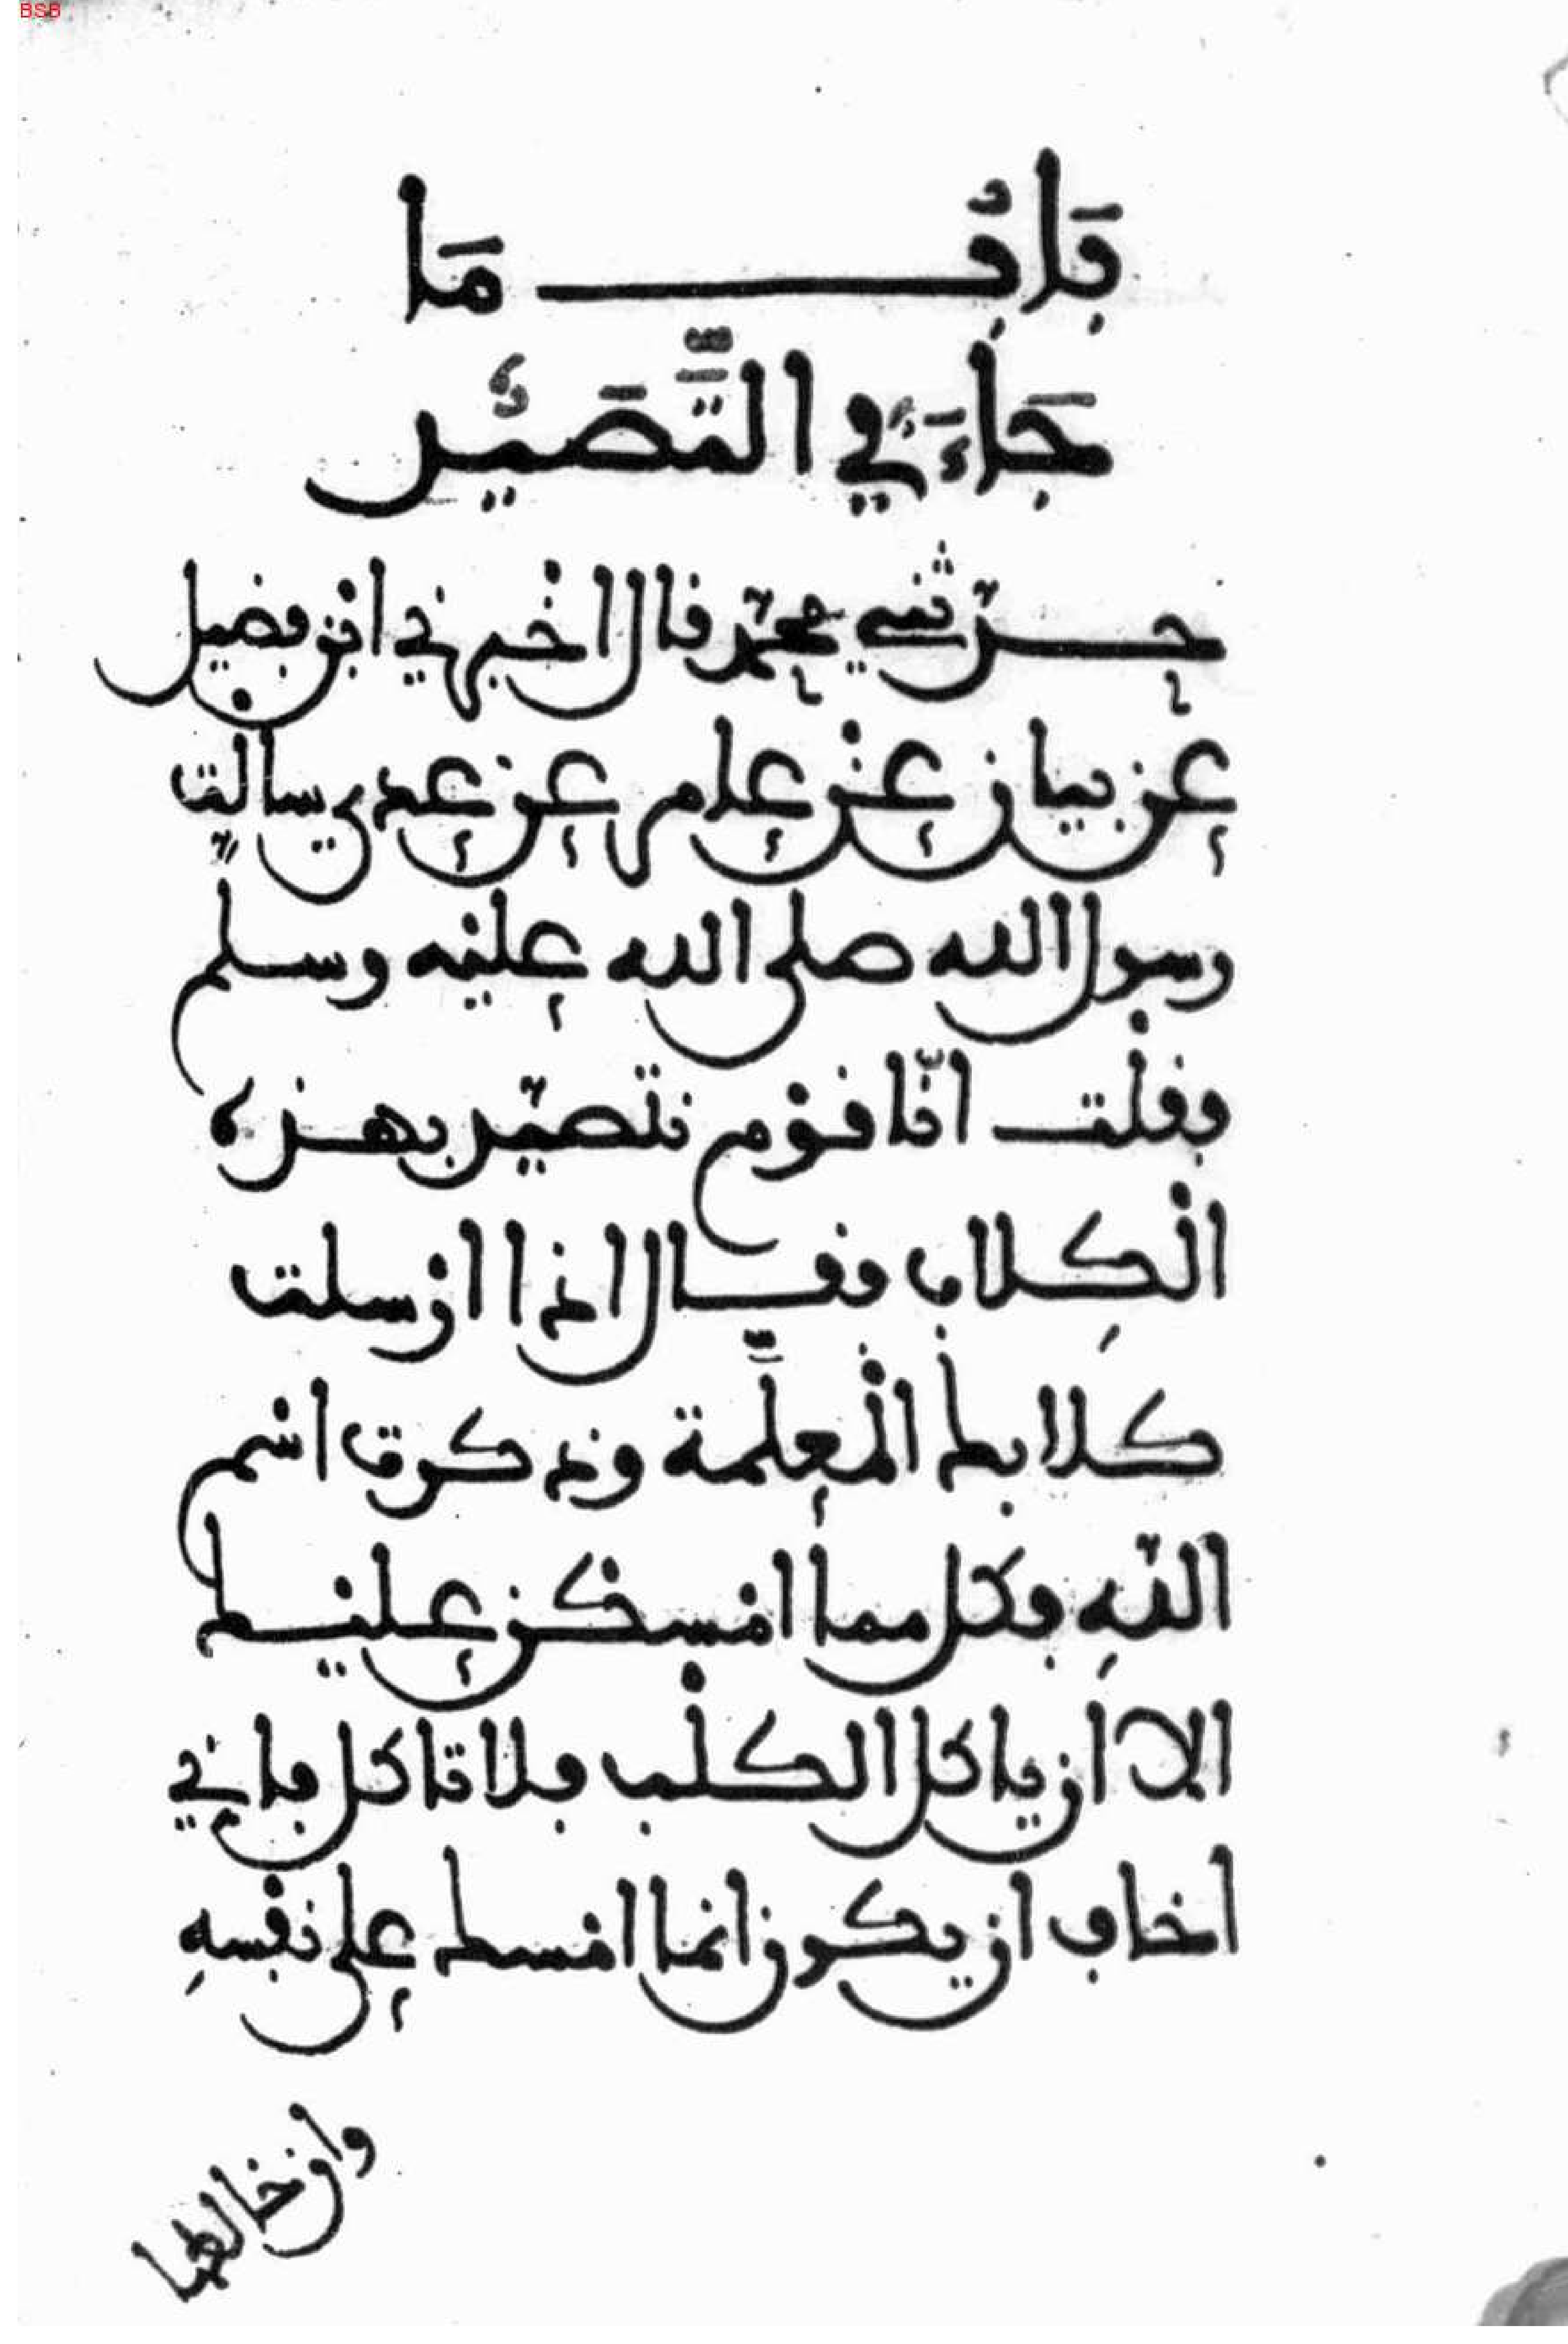 BSB
بَابُ مَا
جَاءَ فِي التَّصَيُّد
حدّثني محمّد قال اخبرني ابن فضيل
عن بيان عن عامر عن عدي سالت
رسول الله صلى الله عليه وسلم
فقلت انّا قوم نتصيّد بهذه
الكِلاب فقال اذا ارسلت
كلابك المعلَّمة وذكرت اسم
اللهِ فكل مما امسكن عليك
الا ان ياكل الكلب فلا تاكل فاني
اخاف ان يكون انما امسك على نفسهِ
وان خالطها